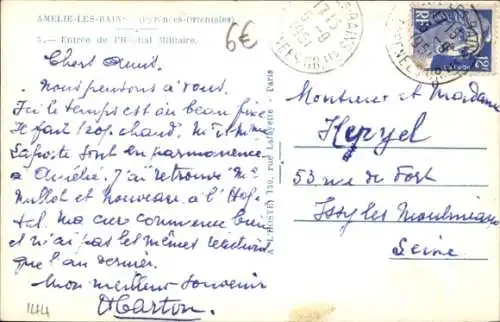 AMELIE-LES-BAINS (Pyrénées-Orientales)
5. - Entrée de l'Hôpital Militaire.
6€
Chers Amis.
Nous pensons à vous.
Ici le temps est au beau fixe
Il fait 120 fr. chaud. Mr et Mme
Laposte sont en permanence
à Amélie. J'ai retrouvé Mr
Mullot et nouveau à l'Hop-
tal. Ma cure commence bien
et n'ai pas les mêmes réactions
que l'an dernier.
Mon meilleur souvenir
Marton.
144
A. L'HOSTE, 139, rue Lafayette - Paris
RF
12
Monsieur et Madame
Heryel
53 rue de Fort
Issy les Moulineaux
Seine.